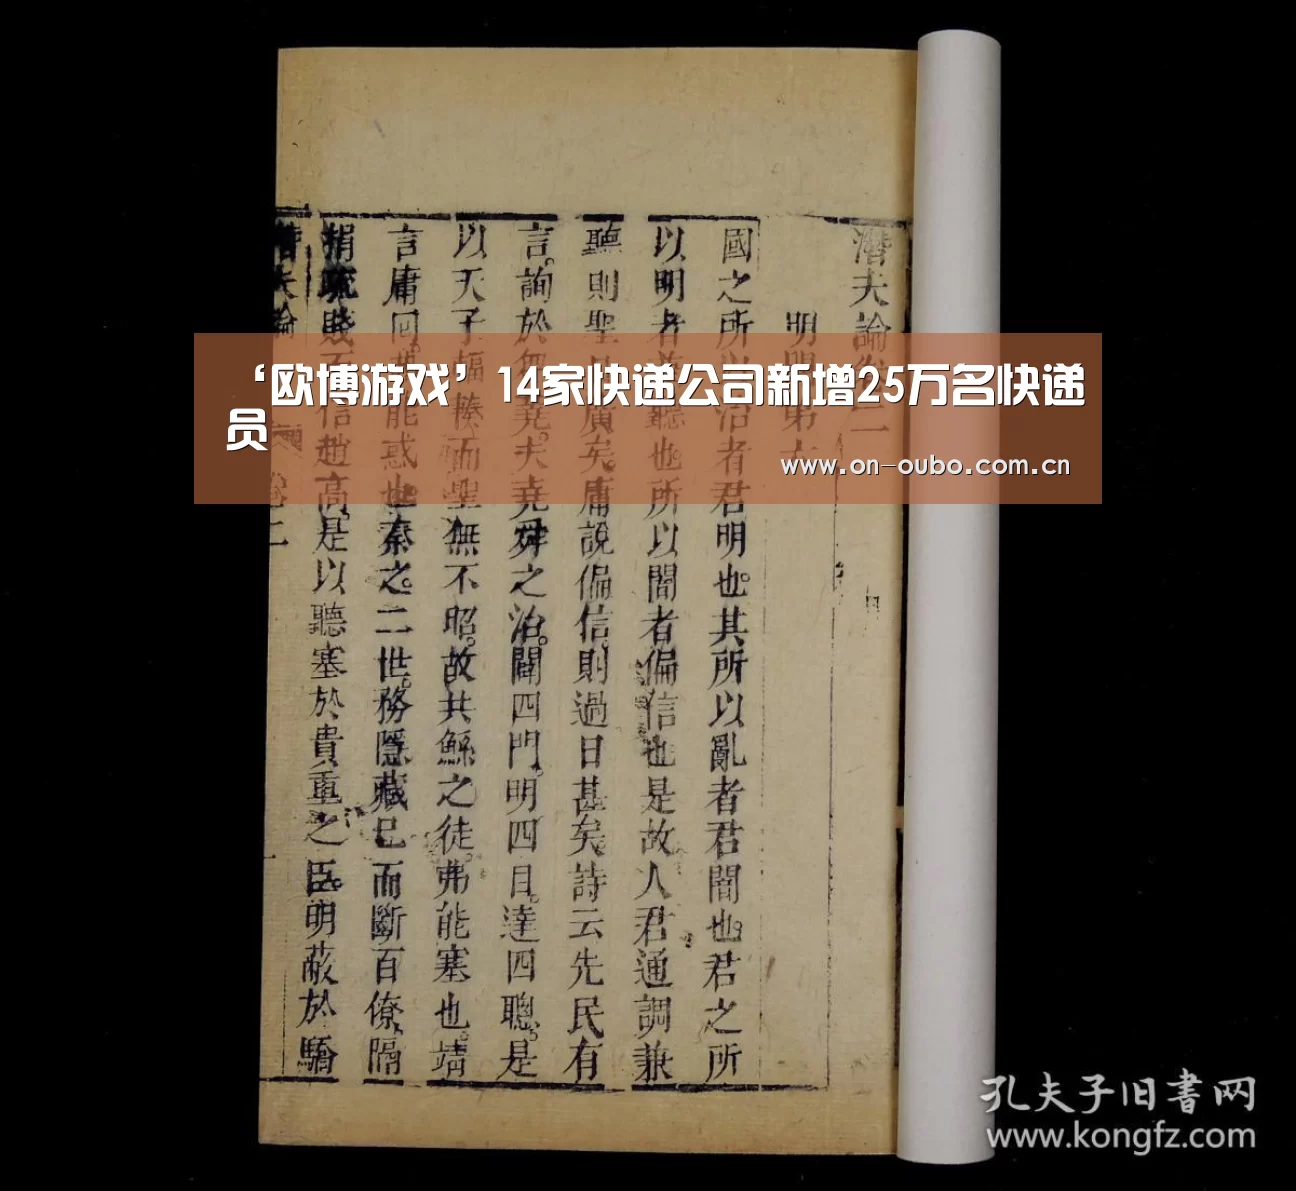 ‘欧博游戏’14家快递公司新增25万名快递
员
www.on-oubo.com.cn
潛夫論卷二
明闇第六
國之所以治者君明也。其所以亂者君闇也。君之所
以明者兼聽也。所以闇者偏信也是故人君通調兼
聽則聖日廣矣。庸說偏信則過日甚矣。詩云先民有
言。詢於芻蕘。夫堯舜之治。闢四門。明四目。達四聰。是
以天子輻輳而聖無不昭。故共鯀之徒。弗能塞也。靖
言庸回。弗能惑也。秦之二世。務隱藏己而斷百僚。隔
捐疏賤而信趙高。是以聽塞於貴重之臣。明蔽於驕
潛夫論 卷二
孔夫子旧书网
www.kongfz.com